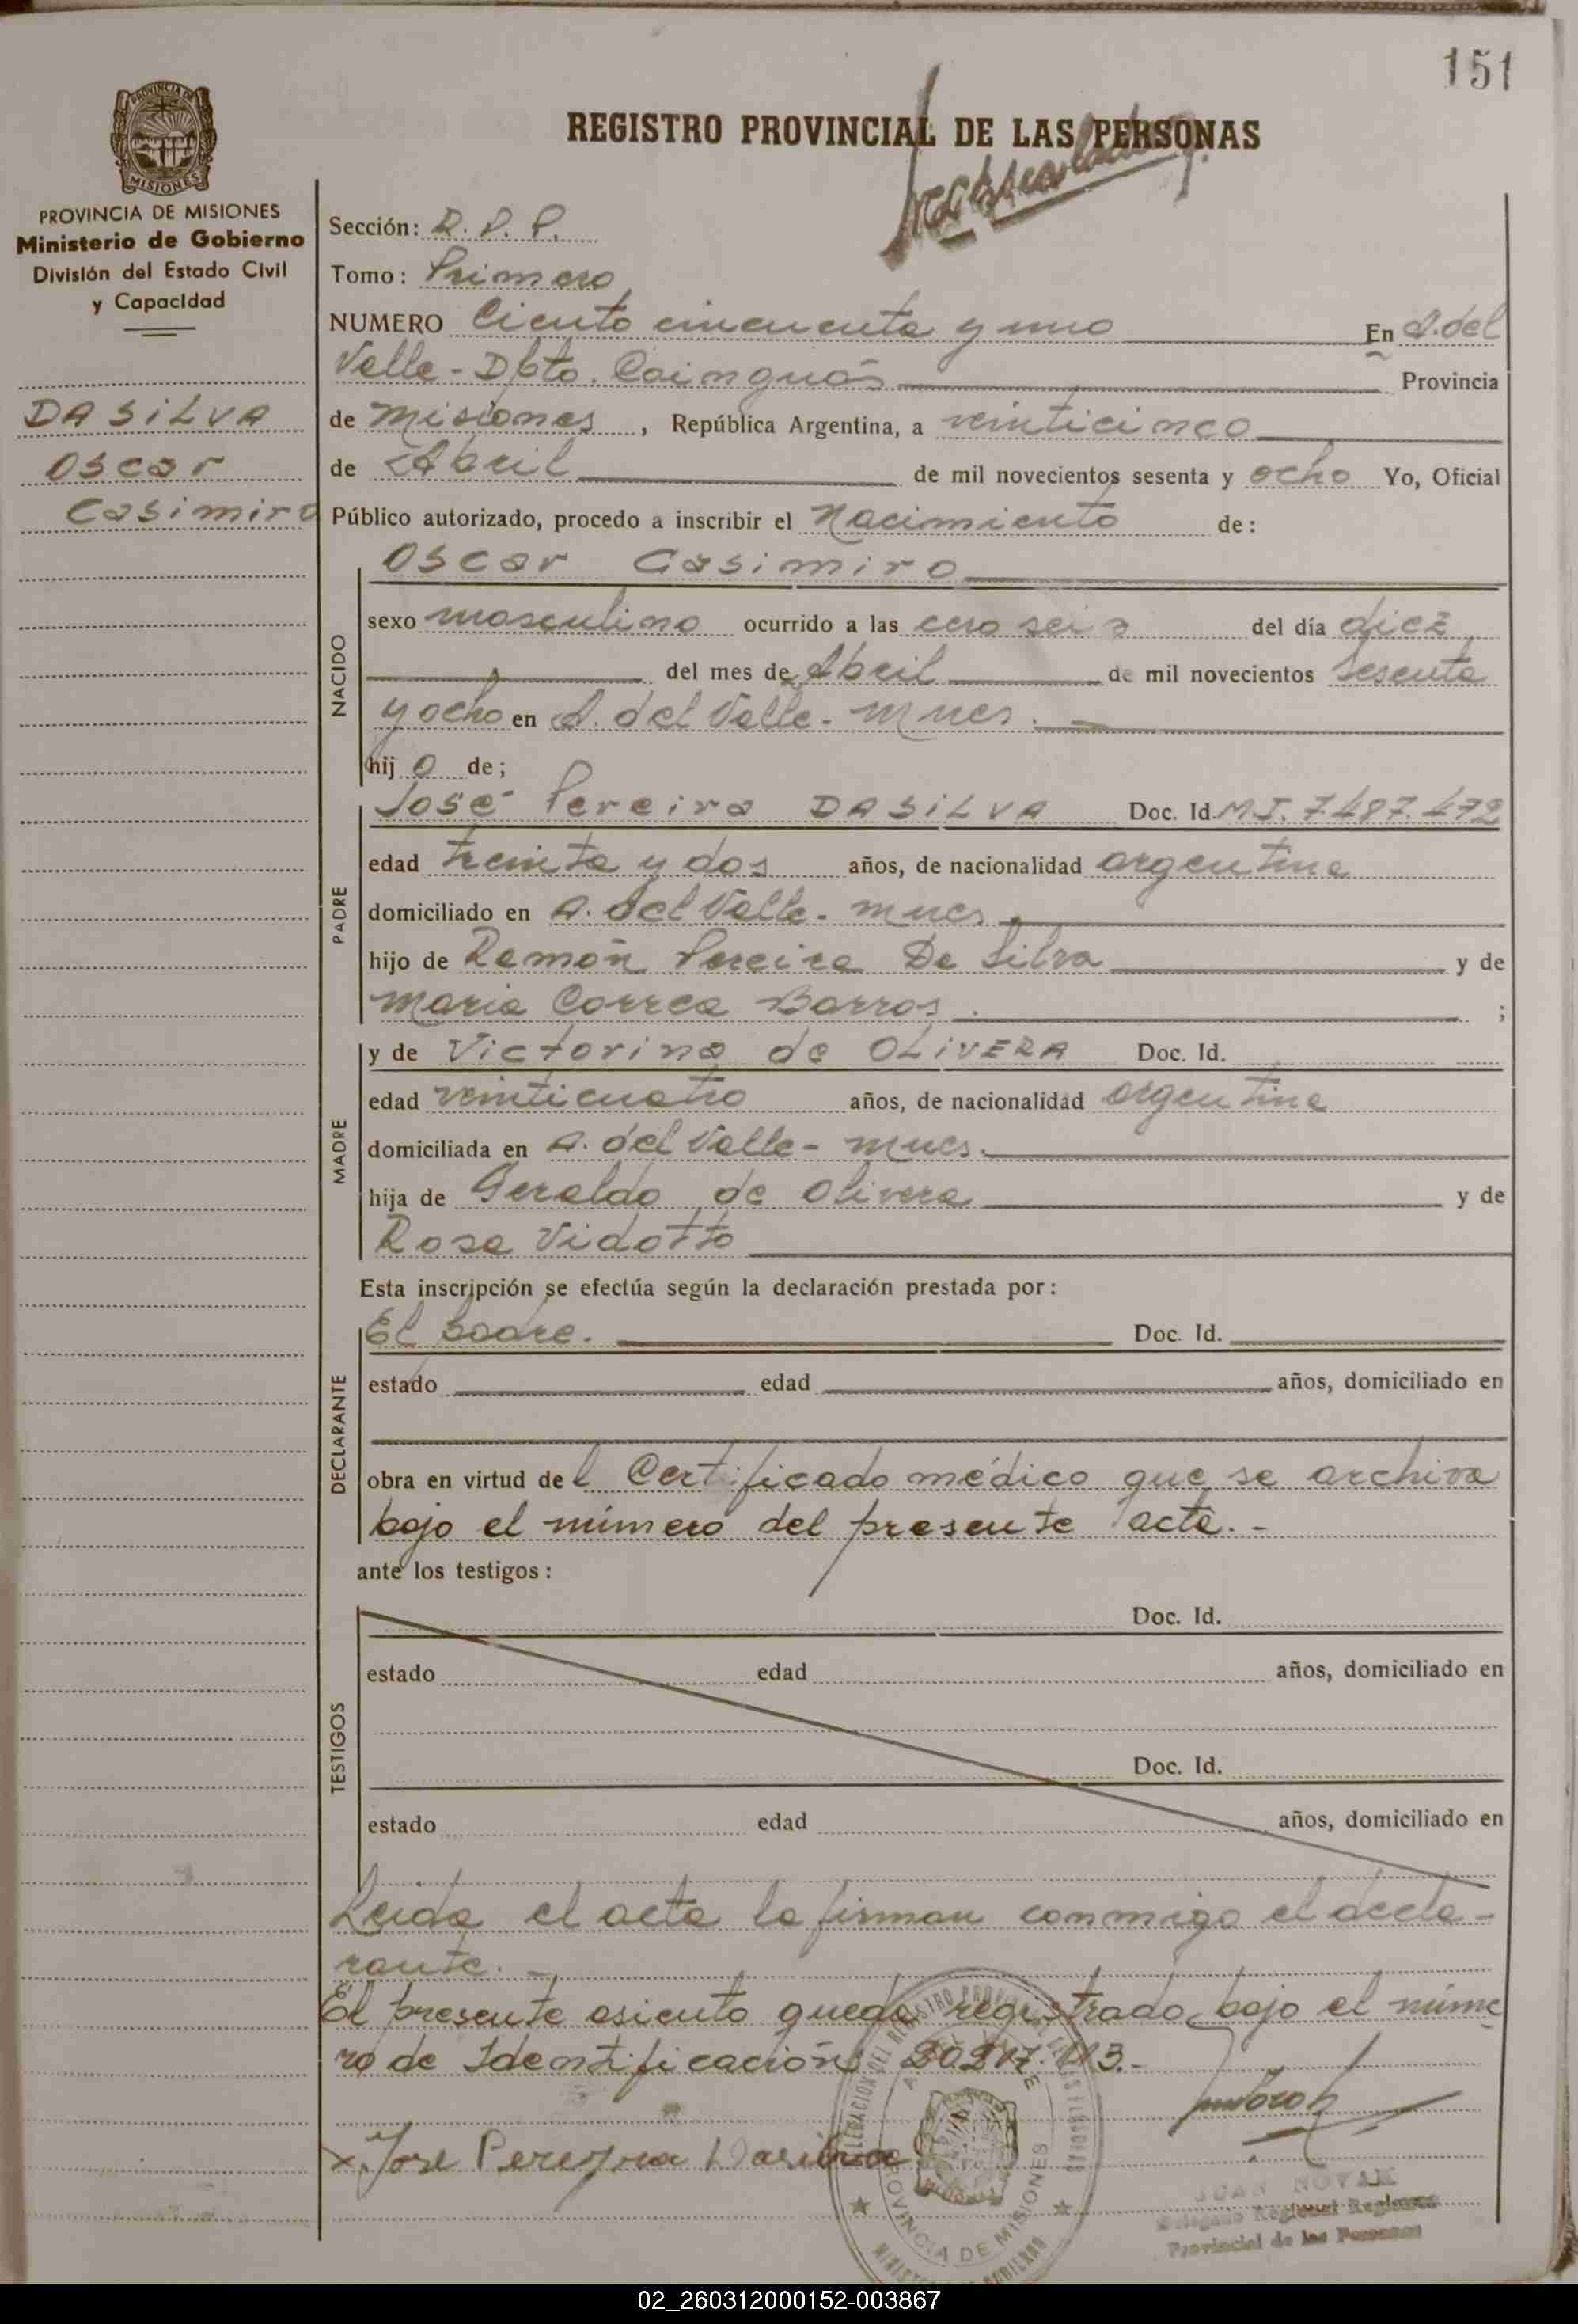 151
REGISTRO PROVINCIAL DE LAS PERSONAS
PROVINCIA DE
MISIONES
PROVINCIA DE MISIONES
Ministerio de Gobierno
División del Estado Civil
y Capacidad
DASILVA
Oscar
Casimiro
Sección: R. P. P.
Tomo: Primero
NUMERO Ciento cincuenta y uno En A. del
Valle - Dpto. Cainguás Provincia
de Misiones, República Argentina, a veinticinco
de Abril de mil novecientos sesenta y ocho Yo, Oficial
Público autorizado, procedo a inscribir el Nacimiento de:
NACIDO
Oscar Casimiro
sexo masculino ocurrido a las cero seis del día diez
del mes de Abril de mil novecientos sesenta
y ocho en A. del Valle - Mnes.
hijo de;
PADRE
José Pereira DASILVA Doc. Id. M.I. 7.487.472
edad treinta y dos años, de nacionalidad argentina
domiciliado en A. del Valle - Mnes.
hijo de Ramón Pereira Da Silva y de
Maria Correa Barros ;
MADRE
y de Victorina de OLIVERA Doc. Id.
edad veinticuatro años, de nacionalidad argentina
domiciliada en A. del Valle - Mnes.
hija de Geraldo de Olivera y de
Rosa Vidotto
Esta inscripción se efectúa según la declaración prestada por:
DECLARANTE
El padre. Doc. Id.
estado edad años, domiciliado en
obra en virtud del Certificado médico que se archiva
bajo el número del presente acta. -
ante los testigos:
TESTIGOS
Doc. Id.
estado edad años, domiciliado en
Doc. Id.
estado edad años, domiciliado en
Leida el acta la firman conmigo el decla-
rante. -
El presente asiento queda registrado bajo el núme
ro de Identificación 20.217.113.-
x José Pereyra Dasilva
PROVINCIA DE MISIONES
JUAN NOVAK
Delegado Regional Registro
Provincial de las Personas
02_260312000152-003867